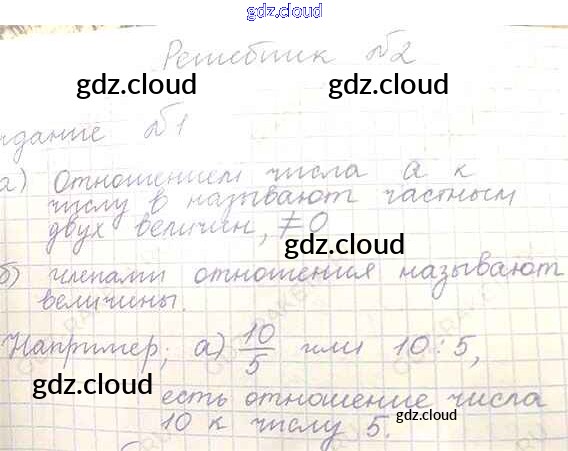 gdz.cloud
Решебник №2
gdz.cloud gdz.cloud
адание №1
а) Отношением числа a к
числу b называют частным
двух величин, ≠0
gdz.cloud
б) членами отношения называют
величины.
Например; а) 10/5 или 10:5,
gdz.cloud
есть отношение числа
10 к числу 5.
gdz.cloud